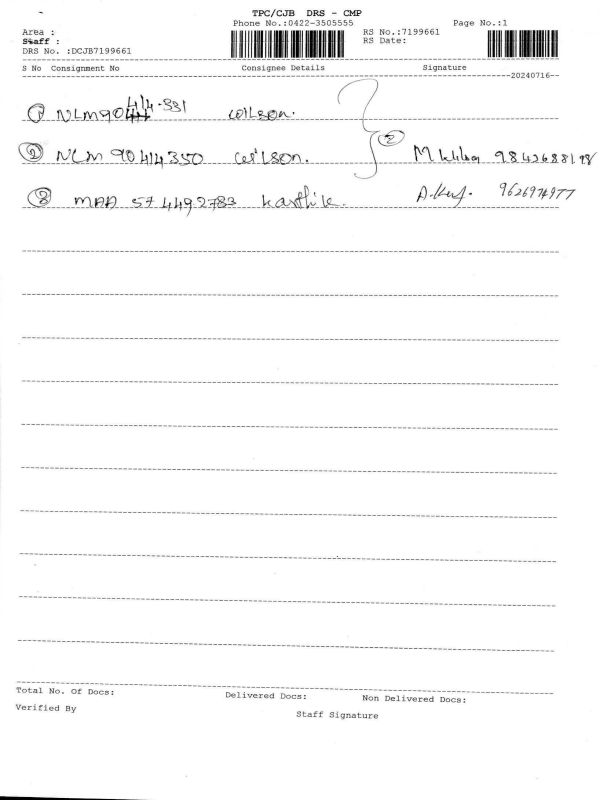 TPC/CJB DRS - CMP
Phone No.:0422-3505555 Page No.:1
Area : RS No.:7199661
Staff : RS Date:
DRS No. :DCJB7199661
S No Consignment No Consignee Details Signature
20240716
1 NLM90414331 Wilson.
2 NLM 90414350 Wilson. 2 9842688198
3 MAA 574492783 Karthik. 9626974977
Total No. Of Docs: Delivered Docs: Non Delivered Docs:
Verified By Staff Signature